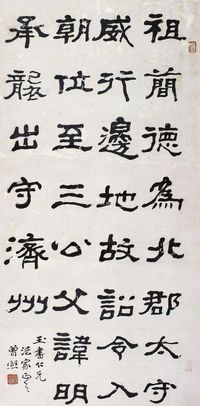 祖簡德為北郡太守
威行邊地故詔令入
朝位至三公父諱明
承襲出守濟州
玉書仁兄
法家正之
曾熙